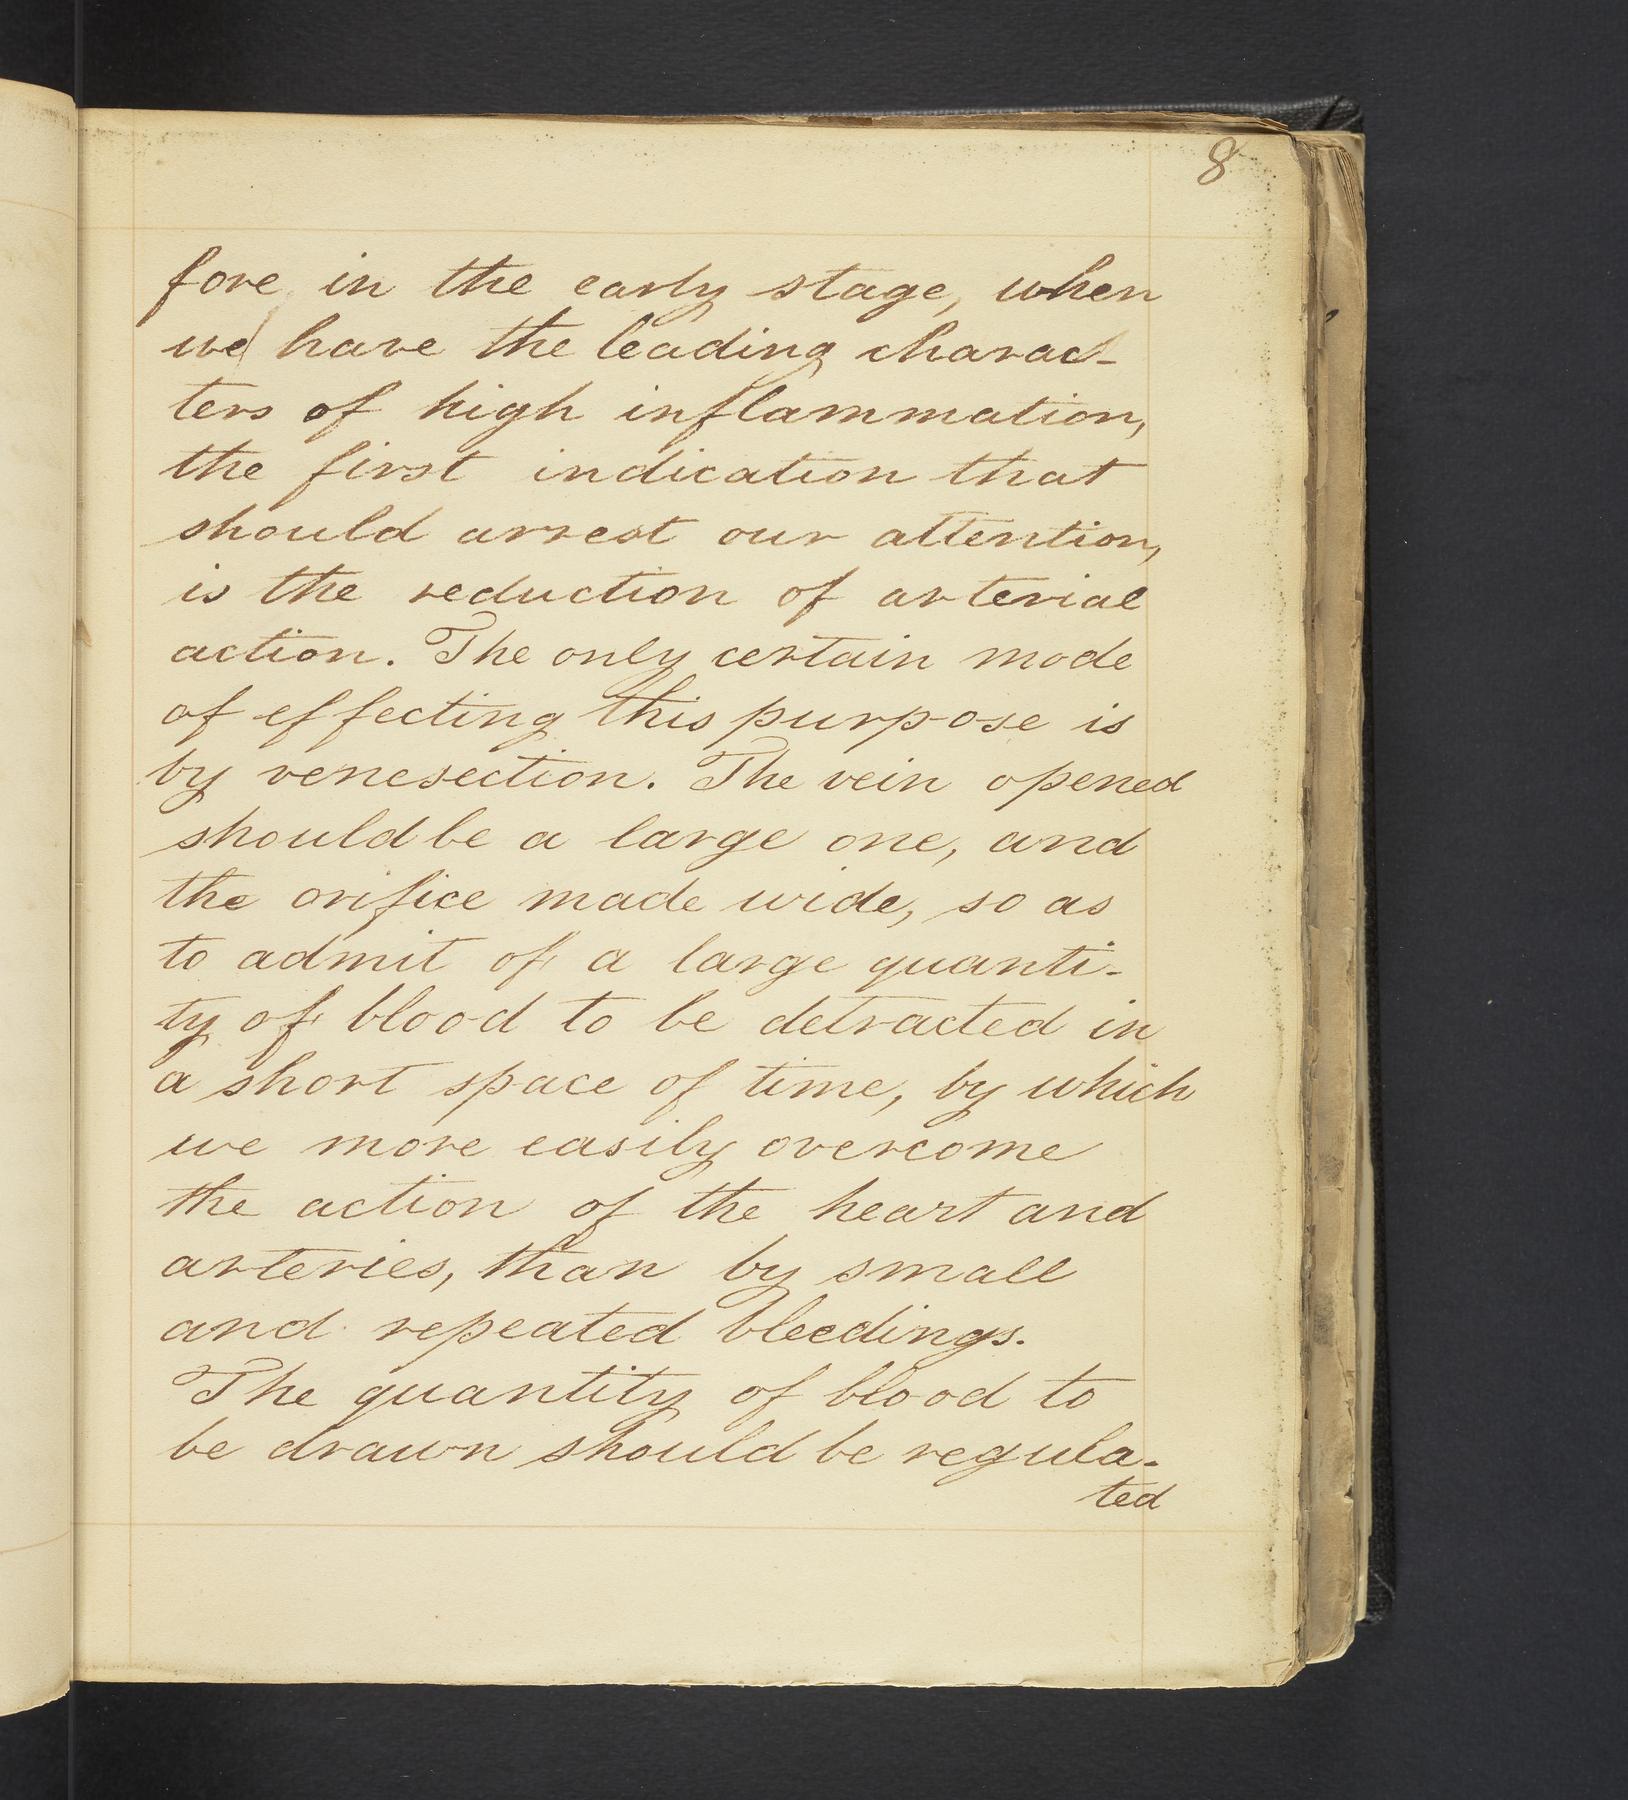 8
fore in the early stage, when
we have the leading charac-
ters of high inflammation,
the first indication that
should arrest our attention,
is the reduction of arterial
action. The only certain mode
of effecting this purpose is
by venesection. The vein opened
should be a large one, and
the orifice made wide, so as
to admit of a large quanti-
ty of blood to be detracted in
a short space of time, by which
we more easily overcome
the action of the heart and
arteries, than by small
and repeated bleedings.
The quantity of blood to
be drawn should be regula-
ted